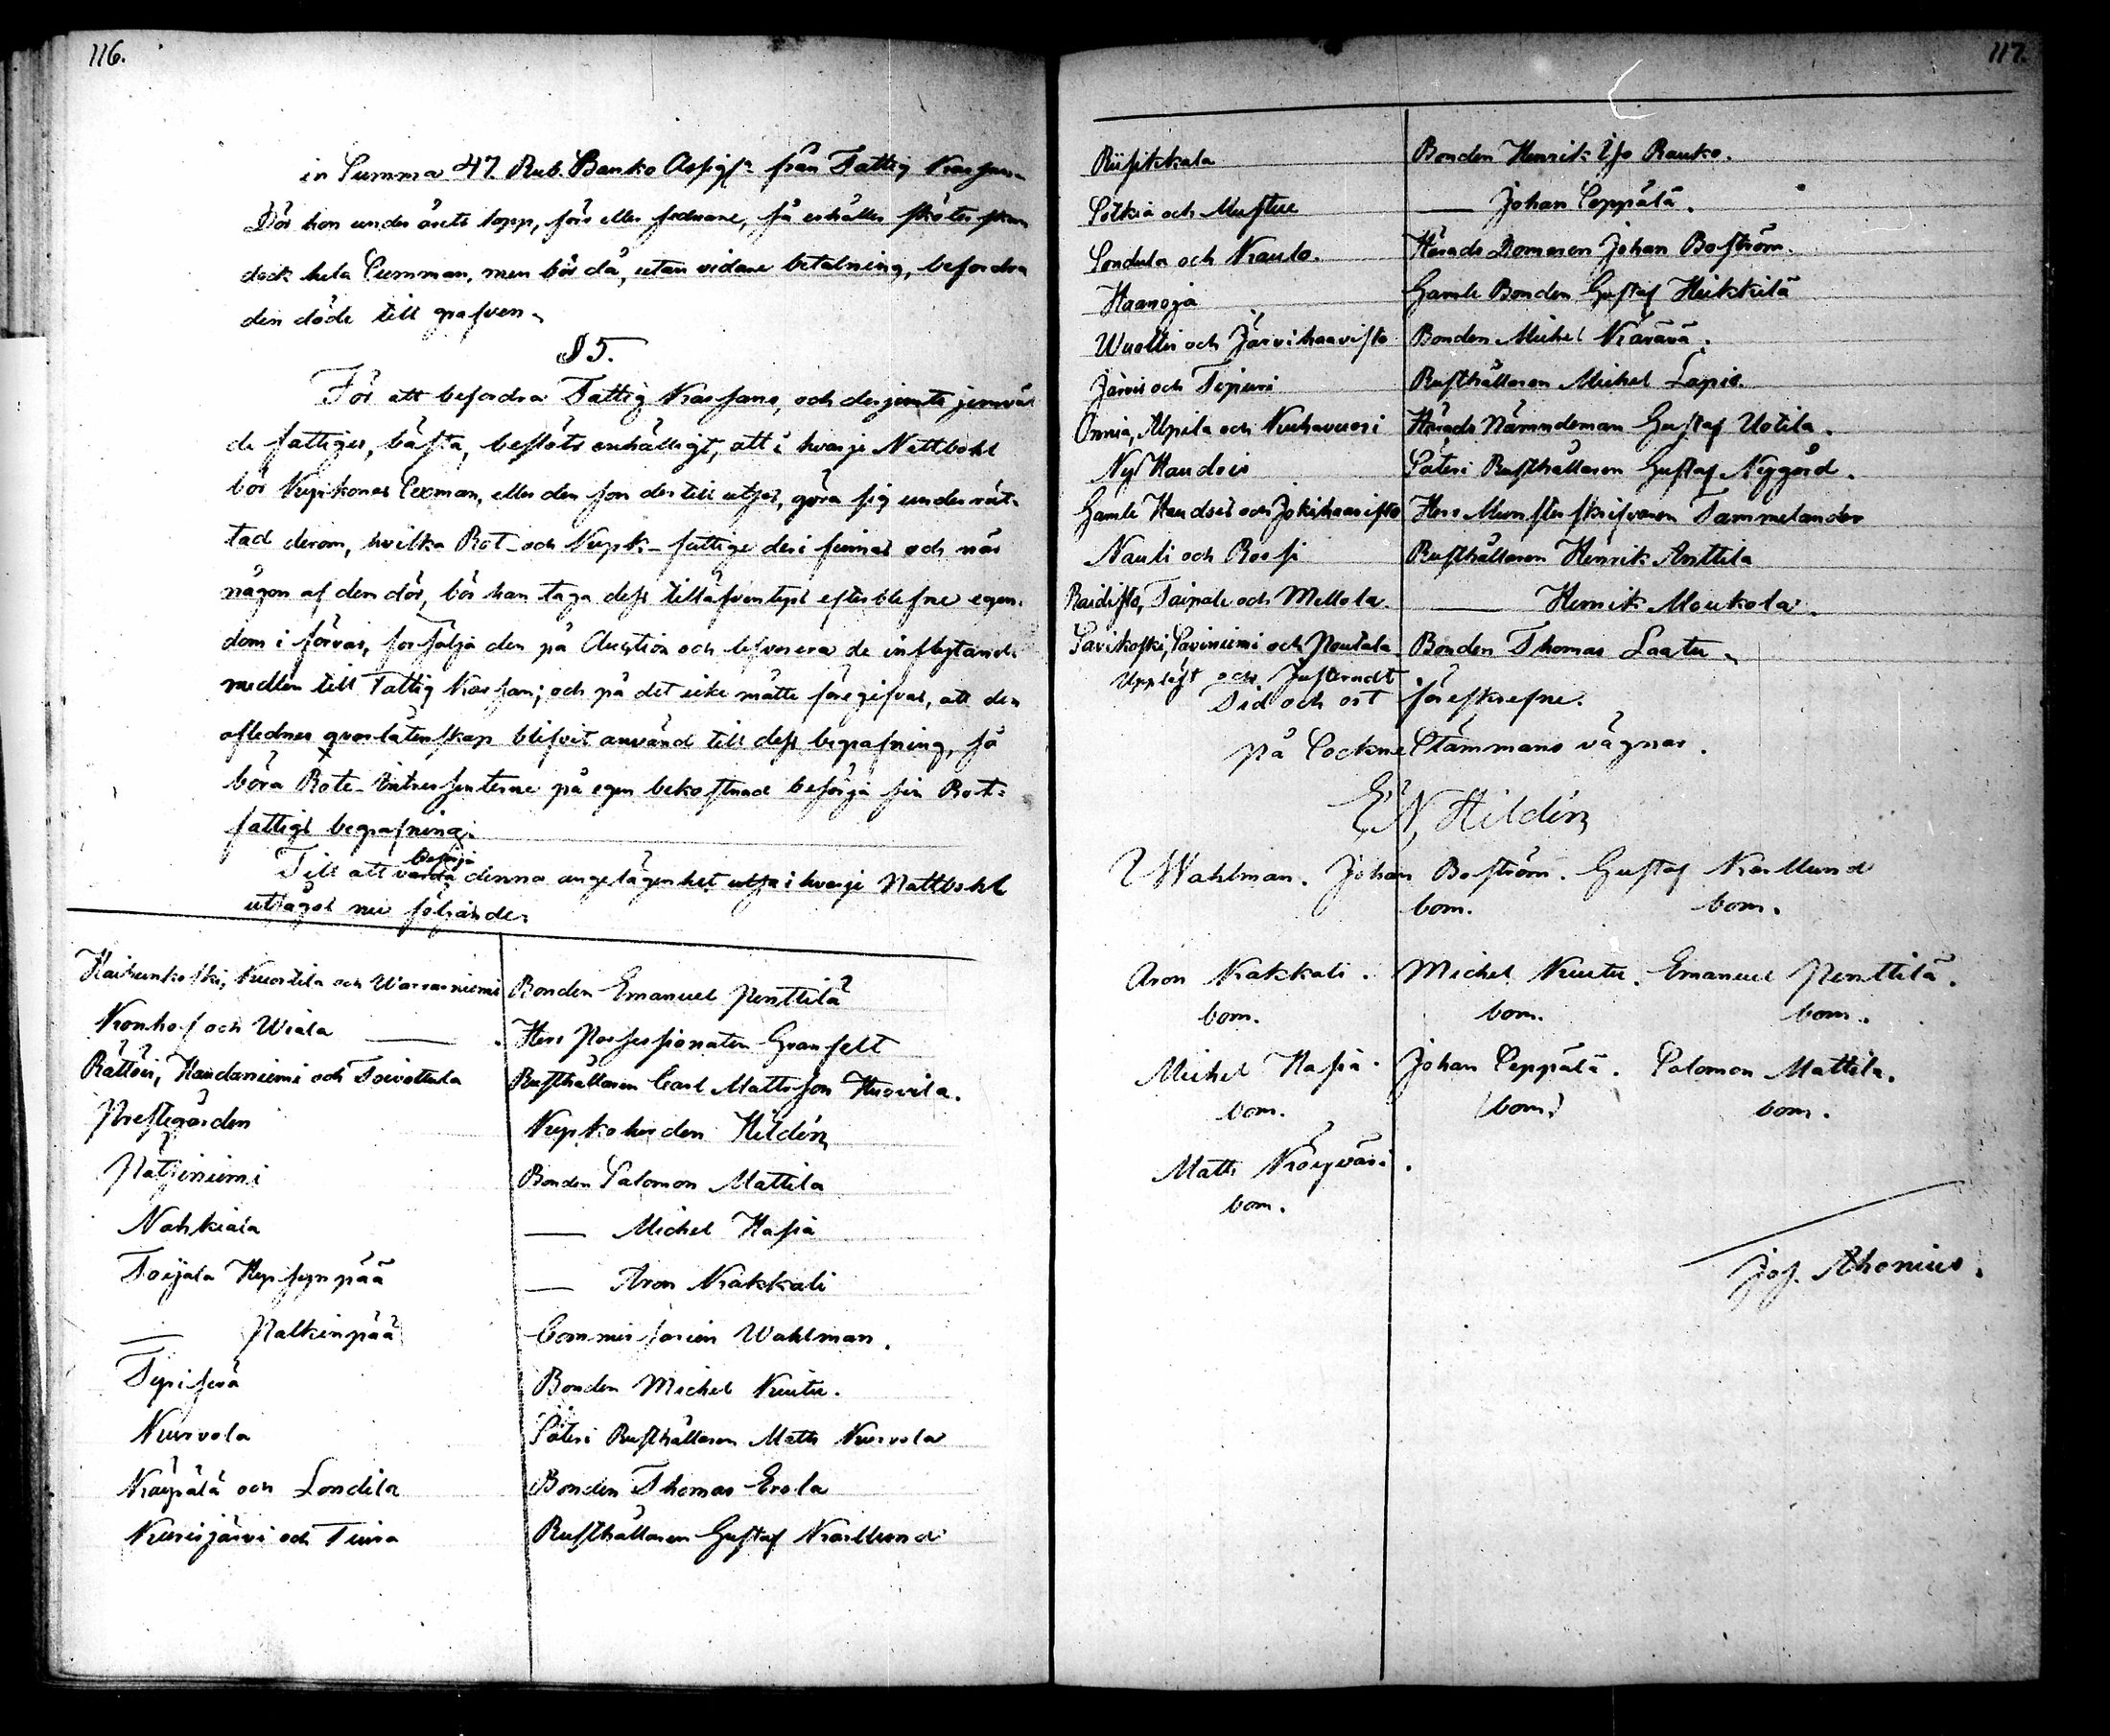 116.
in Summa 47. Rub. Banko Assig:r från Fattig Kassan.
Dör hon under årets lopp, förr eller sednare, så erhåller sköterskan
dock hela Summan, men bör då, utan vidare betalning, befordra
den döde till grafven.
§ 5.
För att befordra Fattig Kassans, och derjemte jemväl
de fattiges, bästa, beslöts enhälligt, att i hvarje Nattbohl
bör Kyrkones Sexman, eller den som der till utses, göra sig underrät-
tad derom, hvilka Rot- och Kyrk-fattige deri finnas och när
någon af dem dör, bör han taga dess tilläfventyrs efterblefne egen-
dom i förvar, försälja den på Auction och leverera de inflytande
medlen till Fattig Kassan; och på det icke måtte föregifvas, att den
aflednes qvarlåtenskap blifvit använd till dess begrafning, så
böra Rote-Intressenterne på egen bekostnad besörja sin Rot-
fattigs begrafning.
besörja
Till att vårda denna angelägenhet utsa i hvarje Nattbohl
utsågos nu följande.
Kaitunkoski, Kuortila och Warrasniemi Bonden Emanuel Penttilä
Kronhof och Wiala Herr Possessionaten Granfelt
Rättöi, Handaniemi och Toivottula Rusthållaren Carl Mattsson Huovila.
Prestegården Kyrkoherden Hildén
Pätjiniemi Bonden Salomon Mattila
Nahkiala — Michel Hasia
Toijala Hyrsynpää — Aron Kakkali
— Palkinpää Commissarien Wahlman.
Terisevä Bonden Michel Kuutu.
Kurvola Säteri Rusthållaren Matts Kurvola
Käypälä och Londila Bonden Thomas Erola
Kurisjärvi och Tursa Rusthållaren Gustaf Karllund
117.
Riisikkala Bonden Henrik Iso Rauko.
Sotkia och Mustue — Johan Seppälä.
Sondula och Kaulo. Härads Domaren Johan Boström.
Haanoja Gamle Bonden Gustaf Heikkilä
Wuolle och Järvihaavisto Bonden Michel Kärärä.
Järvis och Tepuri Rusthållaren Michel Lapio.
Onnia, Alpila och Kuhavuori Härads Nämndeman Gustaf Uotila.
Ny Haudois Säteri Rusthållaren Gustaf Nygård.
Gamle Haudois och Jokihaavisto Herr Munsterskrifvaren Tammelander
Nauli och Rossi Rusthållaren Henrik Anttila
Raidisto, Taipale och Mellola. — Henrik Moukola.
Savikoski, Saviniemi och Poutala Bonden Thomas Laatu.
Uppläst och Justeradt
Tid och ort föreskrefne.
på Sockne Stämmans vägnar.
E N Hildén
Wahlman. Johan Boström. Gustaf Karllund
bom. bom.
Aron Kakkali. Michel Kuutu. Emanuel Penttilä.
bom. bom. bom.
Michel Hasia. Johan Seppälä. Salomon Mattila.
bom. bom. bom.
Matts Köyväri.
bom.
Jos. Ahonius.